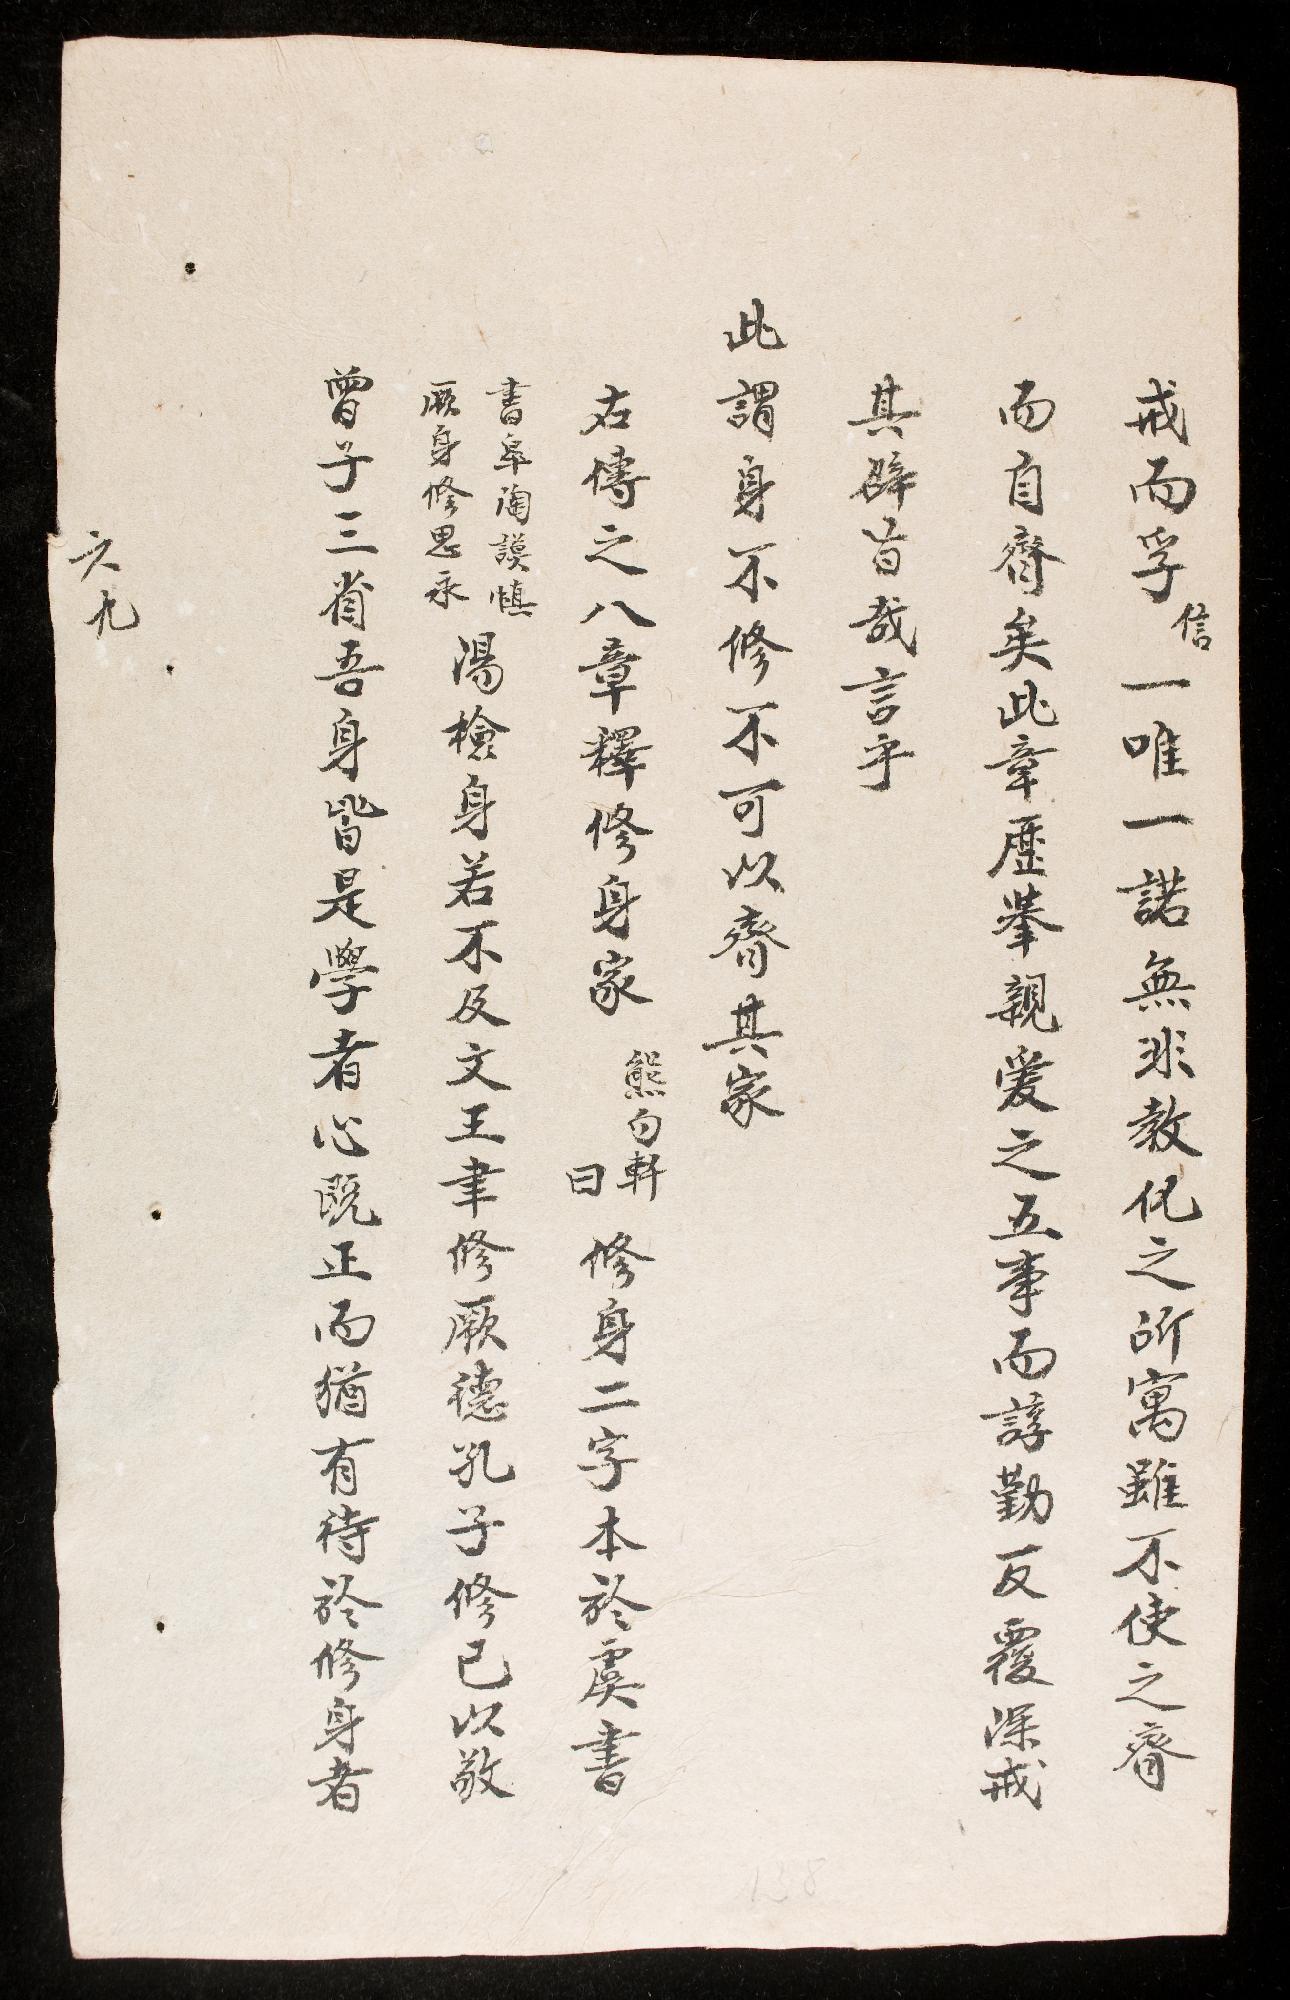 戒而孚信一唯一諾無非教化之所寓雖不使之齊
而自齊矣此章歷擧親爱之五事而諄勤反覆深戒
其辟旨哉言乎
此謂身不修不可以齊其家
右傳之八章釋修身家熊勿軒曰修身二字本於虞書
書皐陶謨愼
厥身修思永
湯檢身若不及文王聿修厥德孔子修己以敬
曾子三省吾身皆是學者心既正而猶有待於修身者
六九
138